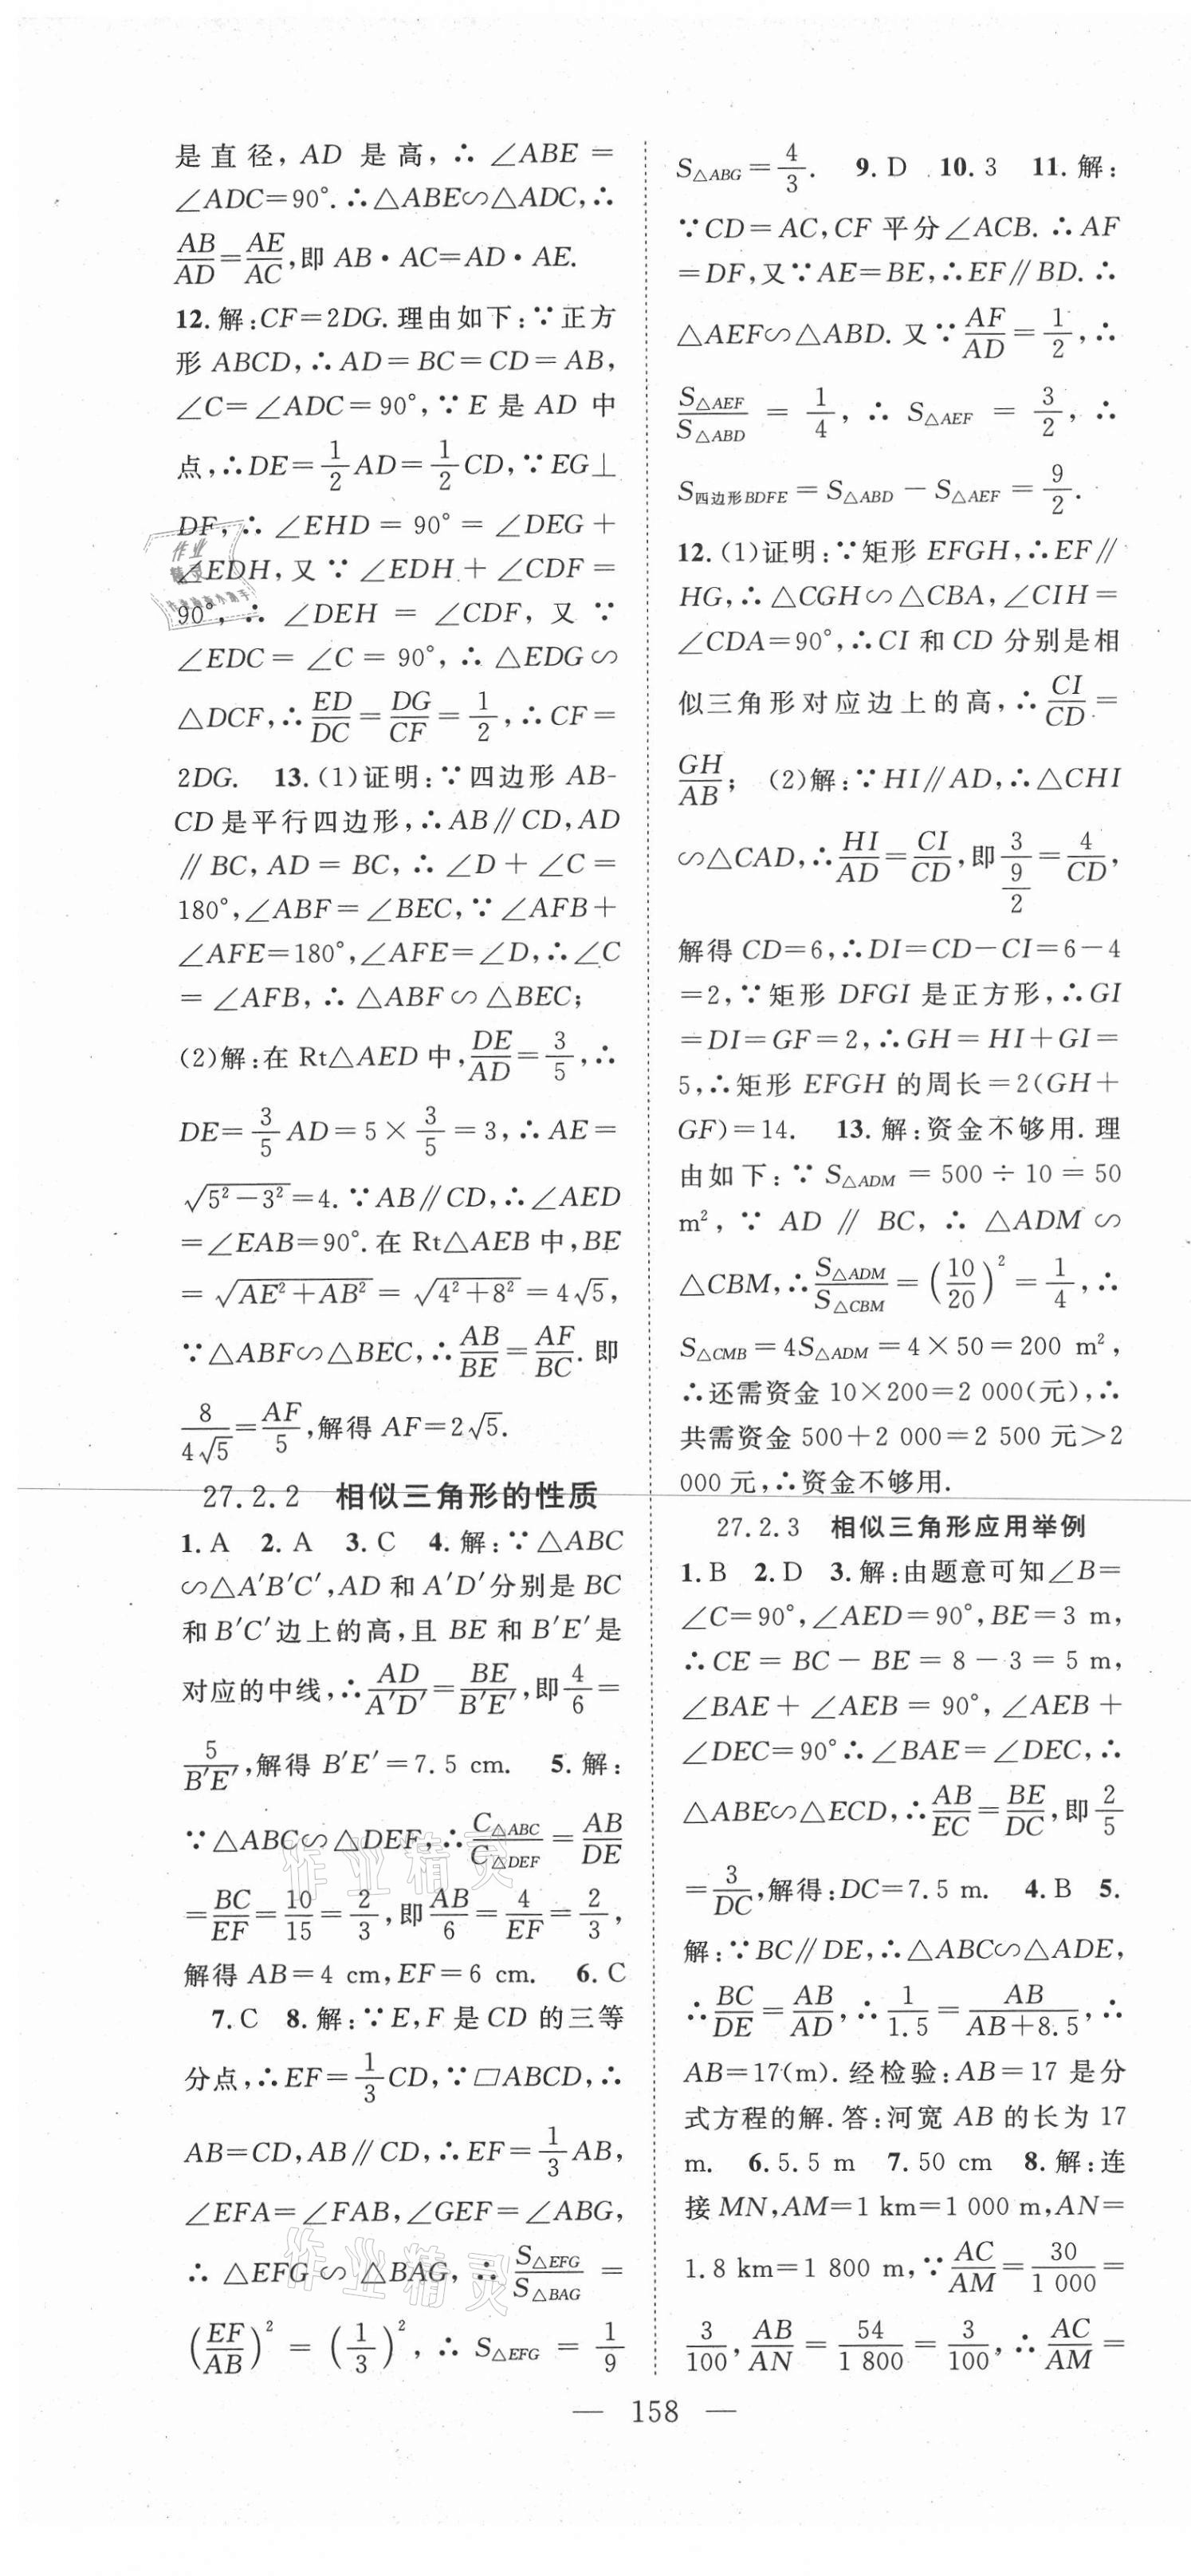 是直径, AD 是高, ∴ ∠ABE =
∠ADC=90°. ∴△ABE∽△ADC, ∴
AB/AD=AE/AC, 即 AB·AC=AD·AE.
12. 解: CF=2DG. 理由如下: ∵正方
形 ABCD, ∴AD=BC=CD=AB,
∠C=∠ADC=90°, ∵E 是 AD 中
点, ∴DE=1/2 AD=1/2 CD, ∵EG⊥
DF, ∴ ∠EHD = 90° = ∠DEG +
∠EDH, 又 ∵ ∠EDH + ∠CDF =
90°, ∴ ∠DEH = ∠CDF, 又 ∵
∠EDC = ∠C = 90°, ∴ △EDG∽
△DCF, ∴ED/DC=DG/CF=1/2, ∴CF=
2DG. 13. (1)证明: ∵四边形 AB-
CD 是平行四边形, ∴AB∥CD, AD
∥BC, AD=BC, ∴ ∠D+∠C=
180°, ∠ABF=∠BEC, ∵∠AFB+
∠AFE=180°, ∠AFE=∠D, ∴∠C
=∠AFB, ∴△ABF∽△BEC;
(2)解: 在 Rt△AED 中, DE/AD=3/5, ∴
DE=3/5 AD=5×3/5=3, ∴AE=
√(5²-3²)=4. ∵AB∥CD, ∴∠AED
=∠EAB=90°. 在 Rt△AEB 中, BE
=√(AE²+AB²)=√(4²+8²)=4√5,
∵△ABF∽△BEC, ∴AB/BE=AF/BC. 即
8/(4√5)=AF/5, 解得 AF=2√5.
27.2.2 相似三角形的性质
1. A 2. A 3. C 4. 解: ∵△ABC
∽△A′B′C′, AD 和 A′D′分别是 BC
和 B′C′边上的高, 且 BE 和 B′E′是
对应的中线, ∴AD/A′D′=BE/B′E′, 即 4/6=
5/B′E′, 解得 B′E′=7.5 cm. 5. 解:
∵△ABC∽△DEF, ∴C△ABC/C△DEF=AB/DE
=BC/EF=10/15=2/3, 即 AB/6=4/EF=2/3,
解得 AB=4 cm, EF=6 cm. 6. C
7. C 8. 解: ∵E, F 是 CD 的三等
分点, ∴EF=1/3 CD, ∵▱ABCD, ∴
AB=CD, AB∥CD, ∴EF=1/3 AB,
∠EFA=∠FAB, ∠GEF=∠ABG,
∴ △EFG∽△BAG, ∴ S△EFG/S△BAG =
(EF/AB)² = (1/3)², ∴ S△EFG = 1/9
S△ABG=4/3. 9. D 10. 3 11. 解:
∵CD=AC, CF 平分∠ACB. ∴AF
=DF, 又∵AE=BE, ∴EF∥BD. ∴
△AEF∽△ABD. 又∵AF/AD=1/2, ∴
S△AEF/S△ABD = 1/4, ∴ S△AEF = 3/2, ∴
S四边形BDFE=S△ABD-S△AEF=9/2.
12. (1)证明: ∵矩形 EFGH, ∴EF∥
HG, ∴△CGH∽△CBA, ∠CIH=
∠CDA=90°, ∴CI 和 CD 分别是相
似三角形对应边上的高, ∴CI/CD=
GH/AB; (2)解: ∵HI∥AD, ∴△CHI
∽△CAD, ∴HI/AD=CI/CD, 即 3/(9/2)=4/CD,
解得 CD=6, ∴DI=CD-CI=6-4
=2, ∵矩形 DFGI 是正方形, ∴GI
=DI=GF=2, ∴GH=HI+GI=
5, ∴矩形 EFGH 的周长=2(GH+
GF)=14. 13. 解: 资金不够用. 理
由如下: ∵ S△ADM = 500÷10=50
m², ∵ AD ∥ BC, ∴ △ADM ∽
△CBM, ∴S△ADM/S△CBM=(10/20)²=1/4, ∴
S△CMB=4S△ADM=4×50=200 m²,
∴还需资金 10×200=2 000(元), ∴
共需资金 500+2 000=2 500 元>2
000 元, ∴资金不够用.
27.2.3 相似三角形应用举例
1. B 2. D 3. 解: 由题意可知∠B=
∠C=90°, ∠AED=90°, BE=3 m,
∴CE=BC-BE=8-3=5 m,
∠BAE+∠AEB=90°, ∠AEB+
∠DEC=90°∴∠BAE=∠DEC, ∴
△ABE∽△ECD, ∴AB/EC=BE/DC, 即 2/5
=3/DC, 解得: DC=7.5 m. 4. B 5.
解: ∵BC∥DE, ∴△ABC∽△ADE,
∴BC/DE=AB/AD, ∴1/1.5=AB/(AB+8.5), ∴
AB=17(m). 经检验: AB=17 是分
式方程的解. 答: 河宽 AB 的长为 17
m. 6. 5.5 m 7. 50 cm 8. 解: 连
接 MN, AM=1 km=1 000 m, AN=
1.8 km=1 800 m, ∵AC/AM=30/1 000=
3/100, AB/AN=54/1 800=3/100, ∴AC/AM=
— 158 —
作业精灵
作业精灵
作业
精灵